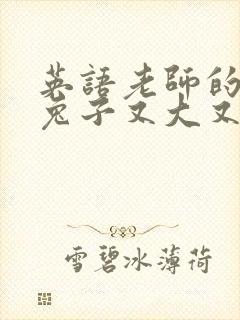 英語老師的
兔子又大又
雪碧冰薄荷